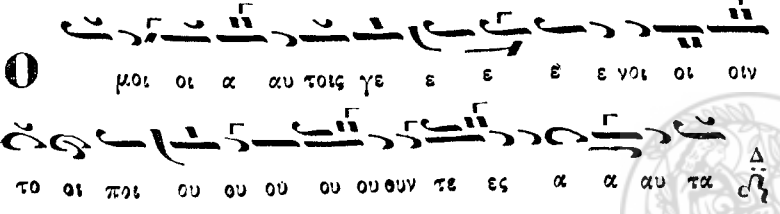 Ο μοι οι α αυ τοις γε ε ε ε ε νοι οι οιν
το οι ποι ου ου ου ου ου ουν τε ες α α αυ τα Δ